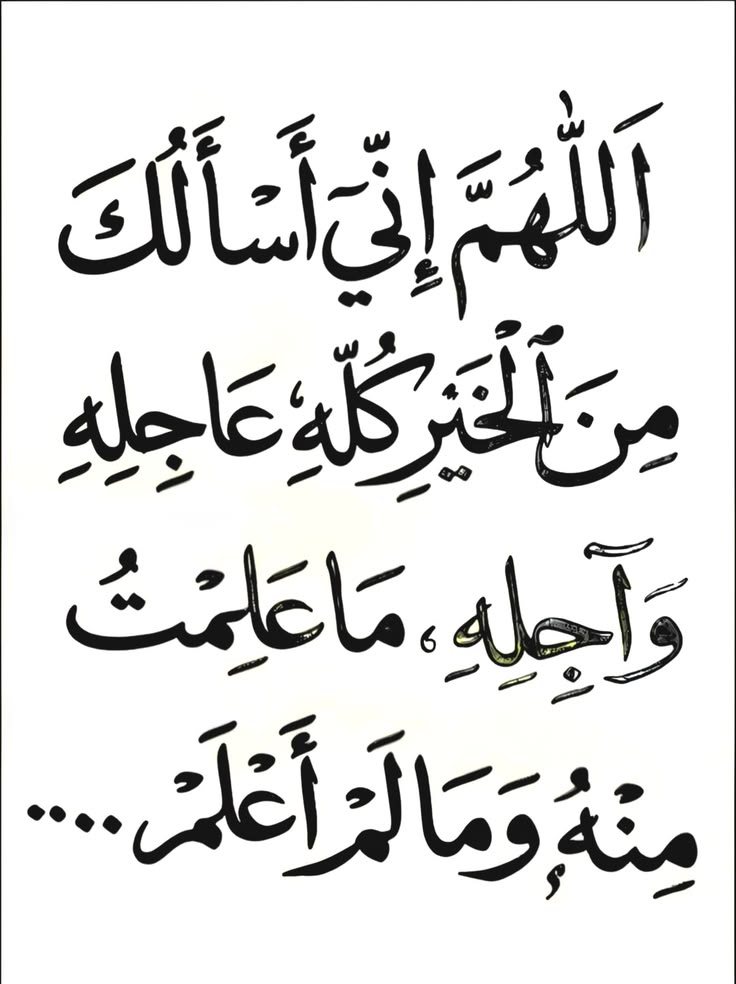 اَللّٰهُمَّ إِنِّيٓ أَسْأَلُكَ
مِنَ ٱلْخَيْرِ كُلِّهِ، عَاجِلِهِ
وَآجِلِهِ، مَا عَلِمْتُ
مِنْهُ وَمَا لَمْ أَعْلَمْ ....